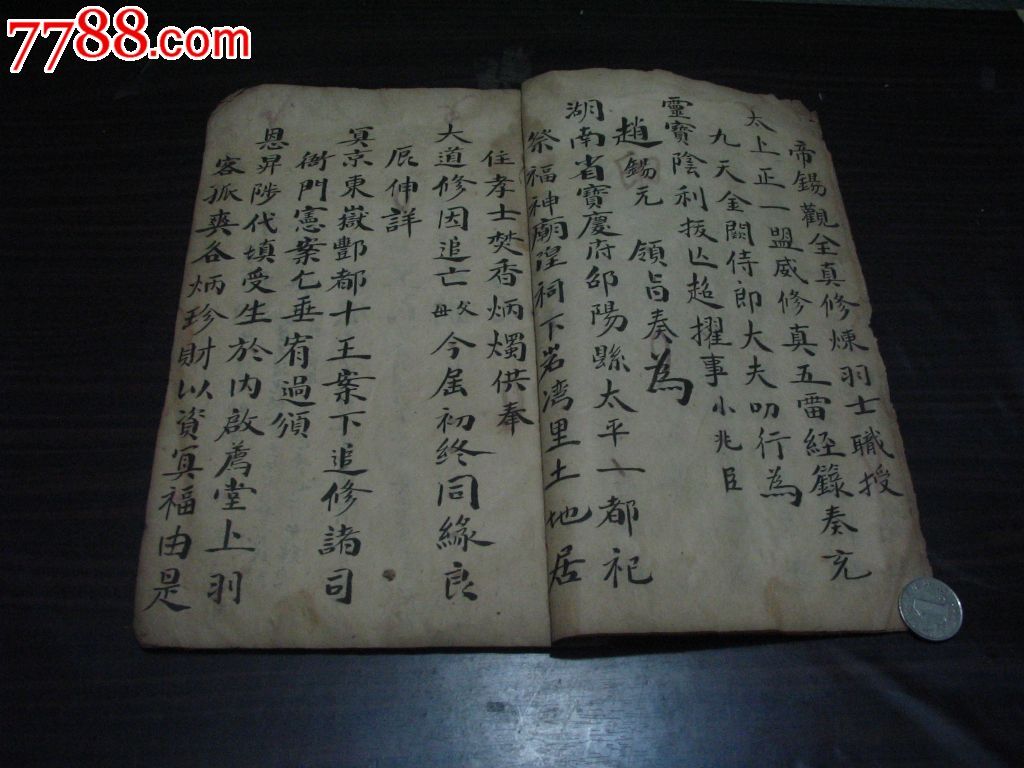 7788.com
帝錫觀全真修煉羽士職授
太上正一盟威修真五雷經籙奏充
九天金闕侍郎大夫叨行為
靈寶陰利拔亾超擢事小兆臣
趙錫元 領旨奏為
湖南省寶慶府邵陽縣太平一都祀
祭福神廟隍祠下岩湾里土地居
住孝士焚香炳燭供奉
大道修因追亡父母今屆初終同緣良
辰伸詳
冥京東嶽酆都十王案下追修諸司
衙門憲案乞垂宥過須
恩昇陟代填受生於內啟薦堂上羽
容孤爽各炳珍財以資冥福由是